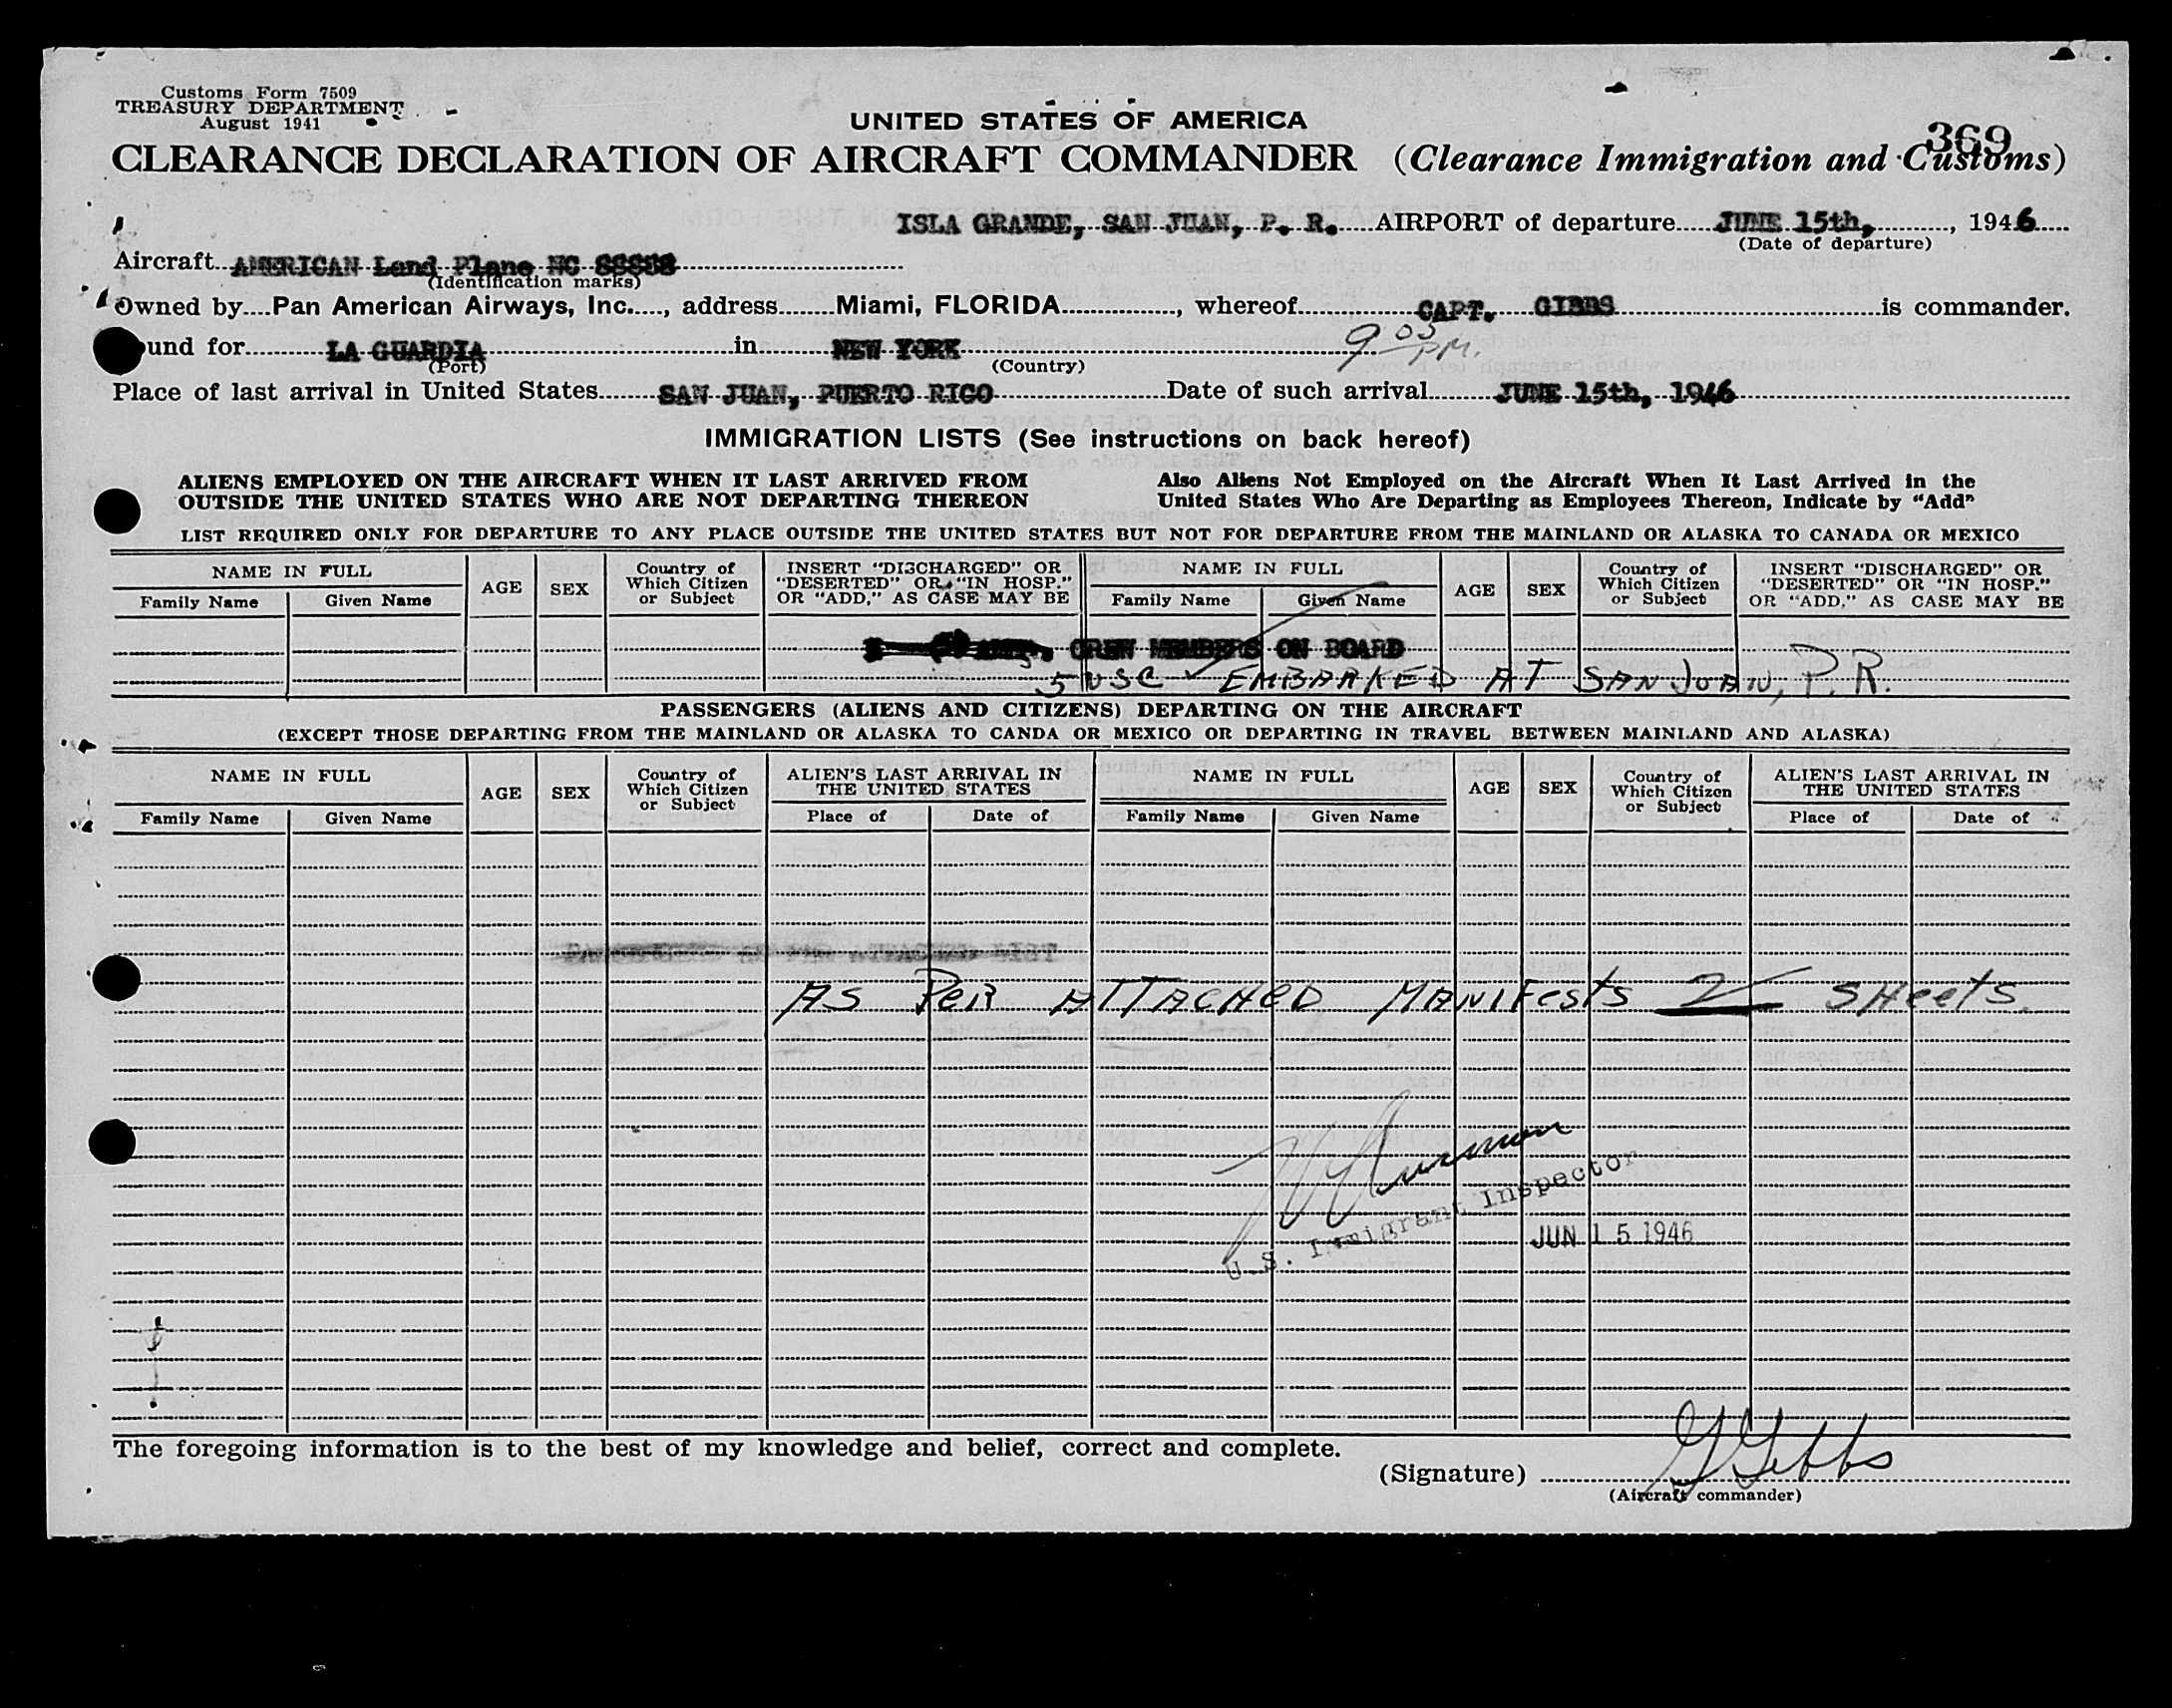 Customs Form 7509
TREASURY DEPARTMENT
August 1941
UNITED STATES OF AMERICA
369
CLEARANCE DECLARATION OF AIRCRAFT COMMANDER (Clearance Immigration and Customs)
ISLA GRANDE, SAN JUAN, P. R. AIRPORT of departure JUNE 15th, , 1946
(Date of departure)
Aircraft AMERICAN Land Plane NC 88888
(Identification marks)
Owned by Pan American Airways, Inc. , address Miami, FLORIDA , whereof CAPT. GIBBS is commander.
und for LA GUARDIA in NEW YORK 9 05 PM.
(Port) (Country)
Place of last arrival in United States SAN JUAN, PUERTO RICO Date of such arrival JUNE 15th, 1946
IMMIGRATION LISTS (See instructions on back hereof)
ALIENS EMPLOYED ON THE AIRCRAFT WHEN IT LAST ARRIVED FROM Also Aliens Not Employed on the Aircraft When It Last Arrived in the
OUTSIDE THE UNITED STATES WHO ARE NOT DEPARTING THEREON United States Who Are Departing as Employees Thereon, Indicate by "Add"
LIST REQUIRED ONLY FOR DEPARTURE TO ANY PLACE OUTSIDE THE UNITED STATES BUT NOT FOR DEPARTURE FROM THE MAINLAND OR ALASKA TO CANADA OR MEXICO
NAME IN FULL AGE SEX Country of INSERT "DISCHARGED" OR NAME IN FULL AGE SEX Country of INSERT "DISCHARGED" OR
Which Citizen "DESERTED" OR "IN HOSP." Which Citizen "DESERTED" OR "IN HOSP."
Family Name Given Name or Subject OR "ADD," AS CASE MAY BE Family Name Given Name or Subject OR "ADD," AS CASE MAY BE
CREW MEMBERS ON BOARD
5 USC EMBARKED AT SAN JUAN, P. R.
PASSENGERS (ALIENS AND CITIZENS) DEPARTING ON THE AIRCRAFT
(EXCEPT THOSE DEPARTING FROM THE MAINLAND OR ALASKA TO CANDA OR MEXICO OR DEPARTING IN TRAVEL BETWEEN MAINLAND AND ALASKA)
NAME IN FULL AGE SEX Country of ALIEN'S LAST ARRIVAL IN NAME IN FULL AGE SEX Country of ALIEN'S LAST ARRIVAL IN
Which Citizen THE UNITED STATES Which Citizen THE UNITED STATES
or Subject or Subject
Family Name Given Name Place of Date of Family Name Given Name Place of Date of
AS PER ATTACHED MANIFESTS 2 SHEETS.
U.S. Immigrant Inspector
JUN 15 1946
The foregoing information is to the best of my knowledge and belief, correct and complete.
(Signature) G Gibbs
(Aircraft commander)